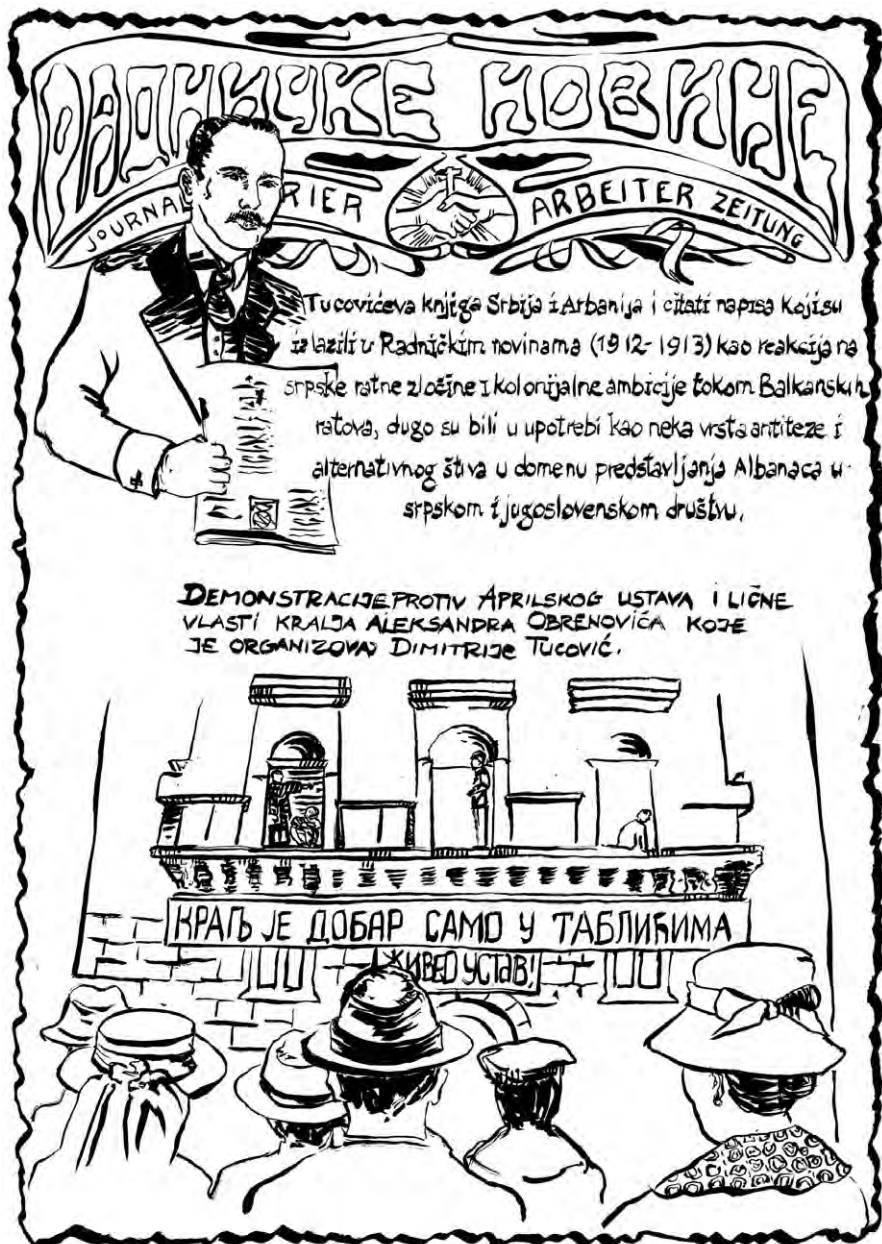 РАДНИЧКЕ НОВИНЕ
JOURNAL RIER ARBEITER ZEITUNG
Tucovićeva knjiga Srbija i Arbanija i citati napisa koji su
izlazili u Radničkim novinama (1912-1913) kao reakcija na
srpske ratne zločine i kolonijalne ambicije tokom Balkanskih
ratova, dugo su bili u upotrebi kao neka vrsta antiteze i
alternativnog štiva u domenu predstavljanja Albanaca u
srpskom i jugoslovenskom društvu.
DEMONSTRACIJE PROTIV APRILSKOG USTAVA I LIČNE
VLASTI KRALJA ALEKSANDRA OBRENOVIĆA KOJE
JE ORGANIZOVAO DIMITRIJE TUCOVIĆ.
КРАЉ ЈЕ ДОБАР САМО У ТАБЛИЋИМА
ЖИВЕО УСТАВ!